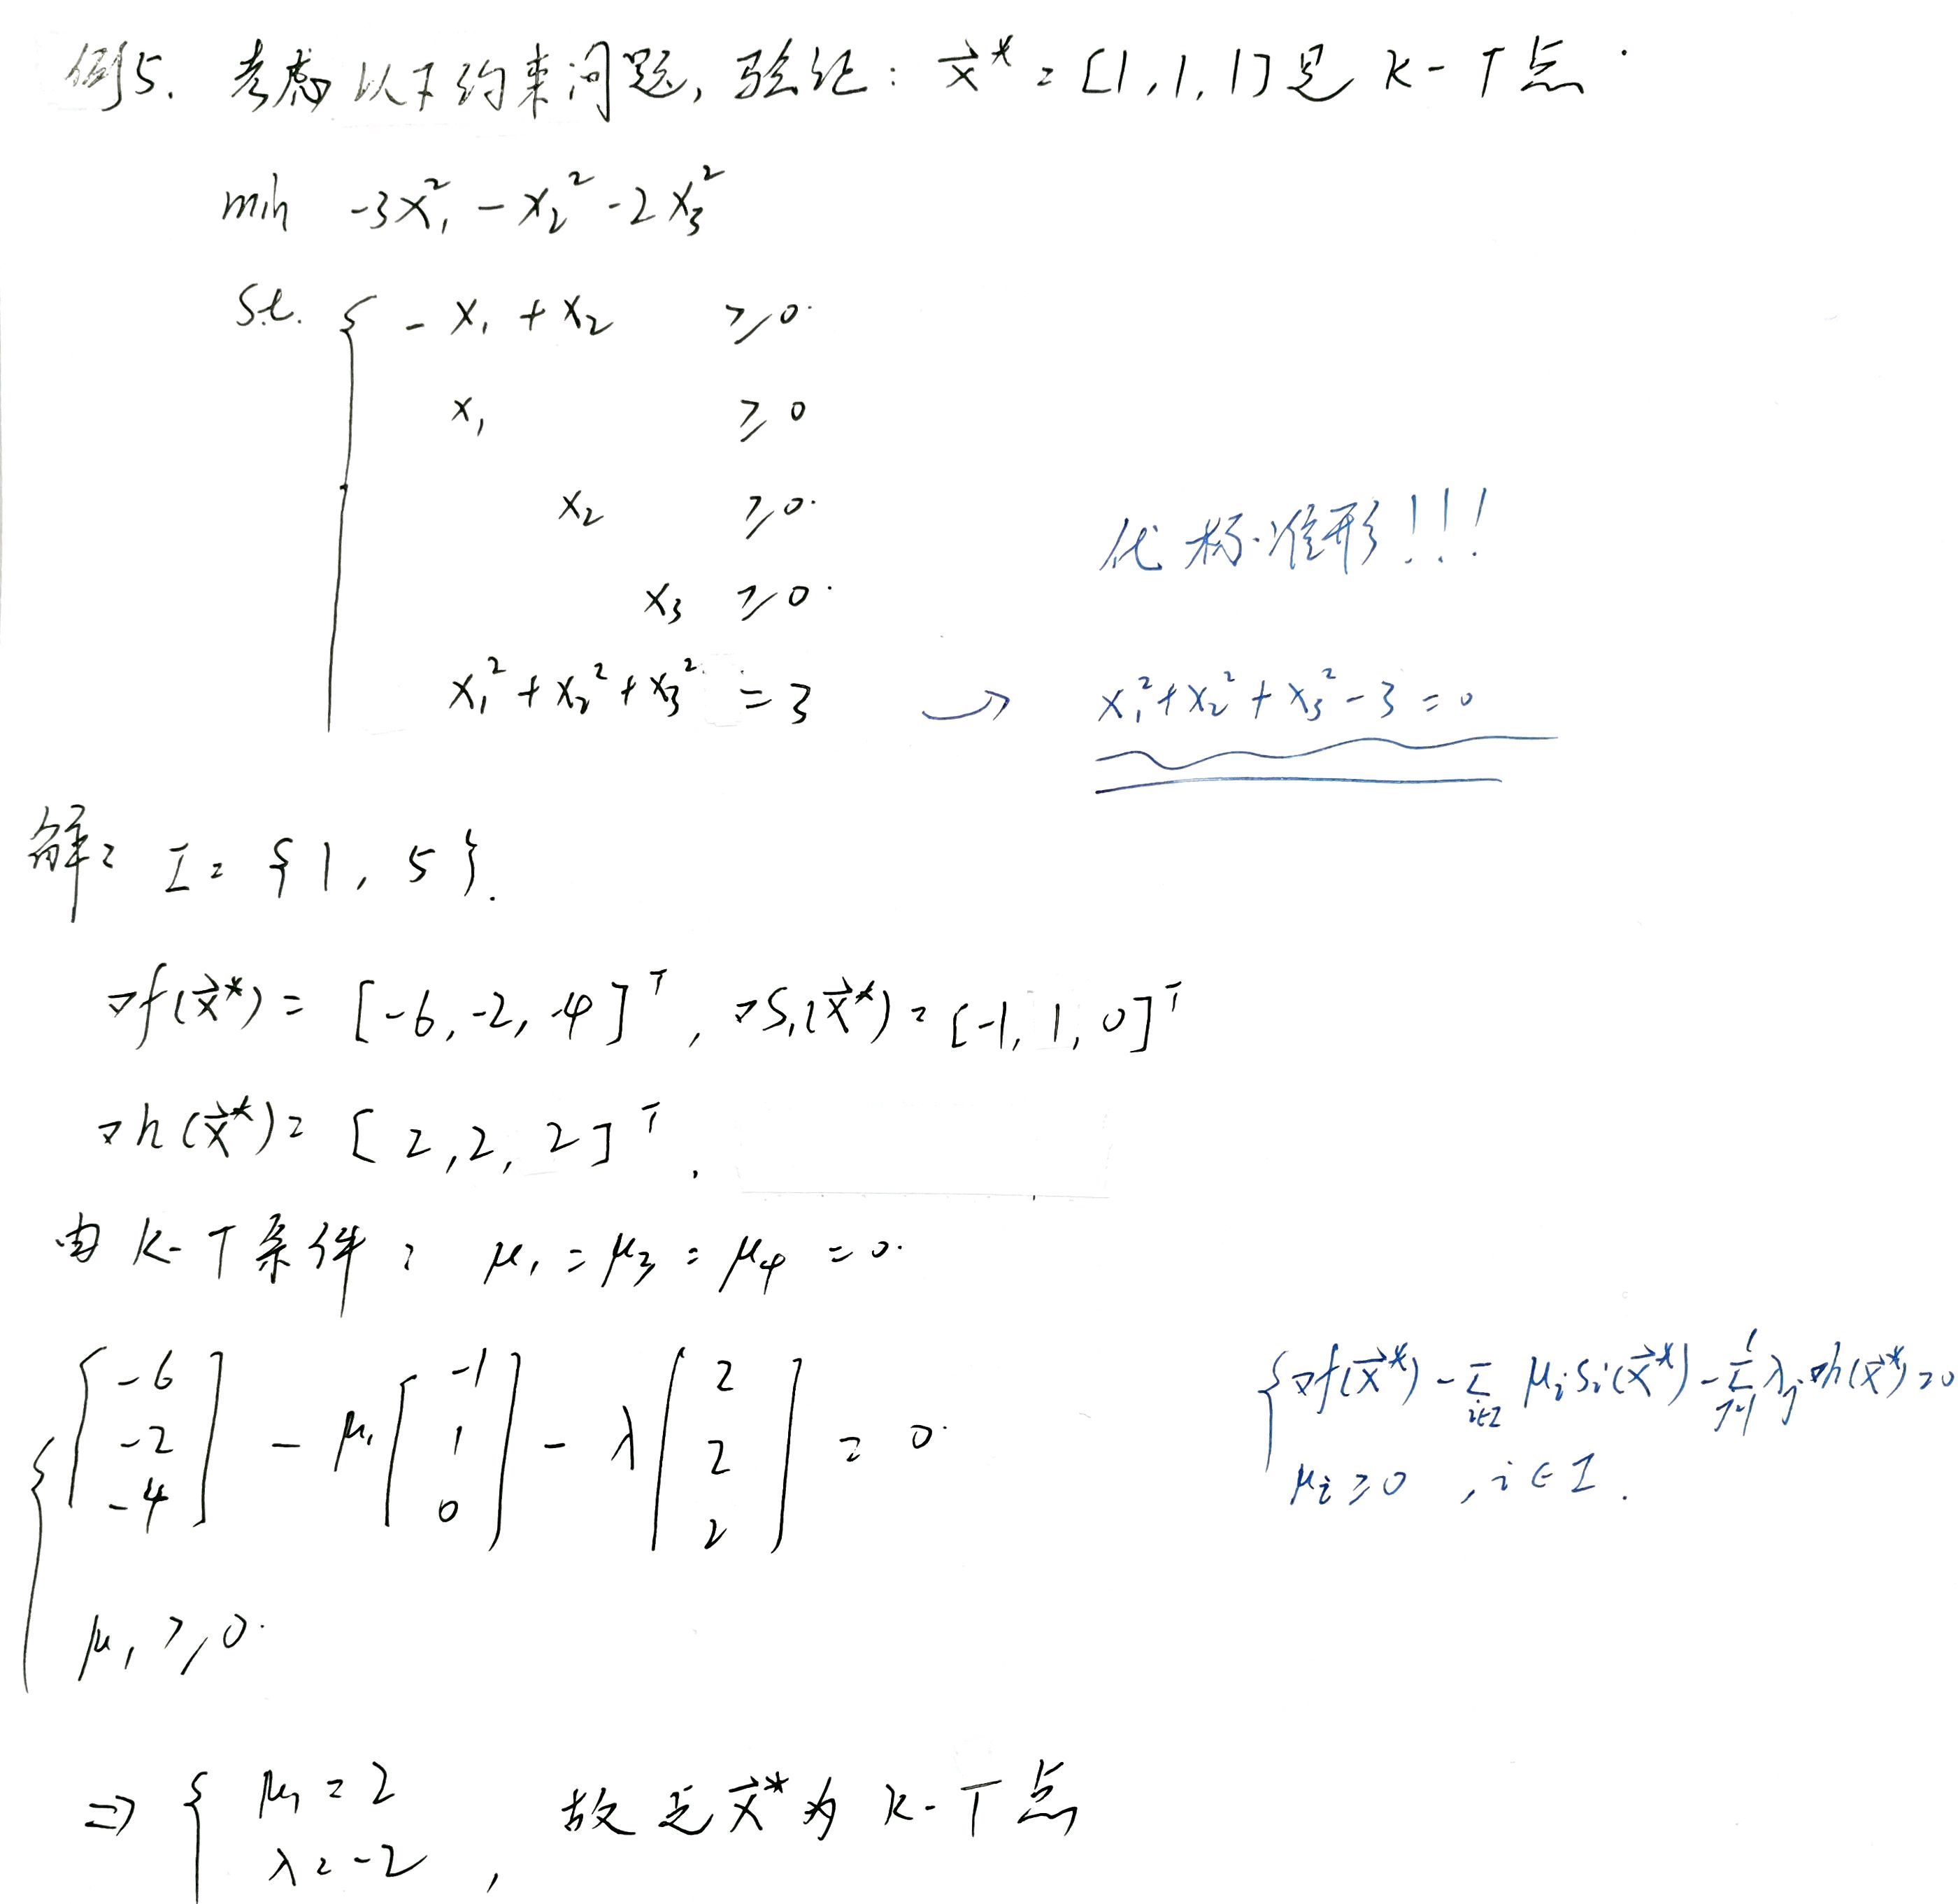 例5. 考虑以下约束问题, 验证: x⃗* = [1, 1, 1] 是 K-T点.
min -3x₁² - x₂² - 2x₃²
s.t. { -x₁ + x₂ ≥ 0.
x₁ ≥ 0
x₂ ≥ 0.
化标准形!!!
x₃ ≥ 0.
x₁² + x₂² + x₃² = 3 → x₁² + x₂² + x₃² - 3 = 0
解: I = {1, 5}.
∇f(x⃗*) = [-6, -2, -4]ᵀ, ∇S₁(x⃗*) = [-1, 1, 0]ᵀ
∇h(x⃗*) = [2, 2, 2]ᵀ.
由 K-T 条件: μ₁ = μ₃ = μ₄ = 0.
{ [-6 -2 -4] - μ₁ [-1 1 0] - λ [2 2 2] = 0.
{ ∇f(x⃗*) - Σ_{i∈I} μᵢ Sᵢ(x⃗*) - Σ_{j=1}^{l} λⱼ ∇h(x⃗*) = 0
μᵢ ≥ 0, i ∈ I.
μ₁ ≥ 0.
⇒ { μ₁ = 2
λ = -2, 故 x⃗* 为 K-T点